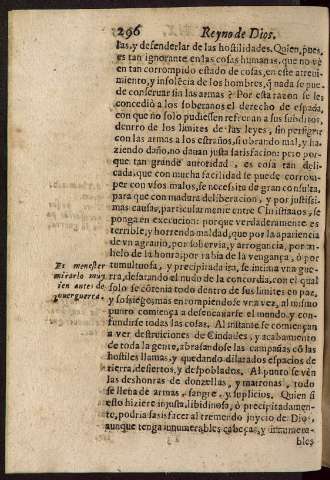 296 Reyno de Dios.
las, y defenderlas de las hostilidades. Quien, pues,
es tan ignorante en las cosas humanas, que no vè
en tan corrompido estado de cosas, en este atrevi-
miento, y insolẽcia de los hombres, q̃ nada se pue-
de conservar sin las armas? Por esta razon se les
concedió a los soberanos el derecho de espada,
con que no solo pudiessen refrenar a sus subditos,
dentro de los limites de las leyes, sin perseguir
con las armas a los estraños, si obrando mal, y ha-
ziendo daño, no davan justa satisfacion: pero por-
que tan grande autoridad, es cosa tan deli-
cada, que con mucha facilidad se puede corrom-
per con vsos malos, se necessito de gran consulta,
para que con madura deliberacion, y por justissi-
mas causas, particularmente entre Christianos, se
ponga en execucion: porque verdaderamente es
terrible, y horrenda maldad, que por la apariencia
de vn agravio, por sobervia, y arrogancia, por an-
helo de la honra, por rabia de la vengança, ò por
tumultuosa, y precipitada ira, se intima vna gue-
rra, desatando el nudo de la concordia, con el qual
solo se cõtenia todo dentro de sus limites en paz,
y sossiego; mas en rompiendose vna vez, al mismo
punto comiença a desencaxarse el mundo, y con-
fundirse todas las cosas. Al instante se comiençan
a ver destruiciones de Ciudades, y acabamiento
de toda la gente, abrasandose las campañas cõ las
hostiles llamas, y quedando dilatados espacios de
tierra, desiertos, y despoblados. Al punto se vèn
las deshonras de donzellas, y matronas, todo
se llena de armas, sangre, y suplicios. Quien si
esto hiziere injusta, libidinosa, ò precipitadamen-
te, podria satisfacer al tremendo juycio de Dios,
aunque tenga innumerables cabeças, y innumera-
bles
Es menester
mirarlo muy
bien antes de
mover guerra.